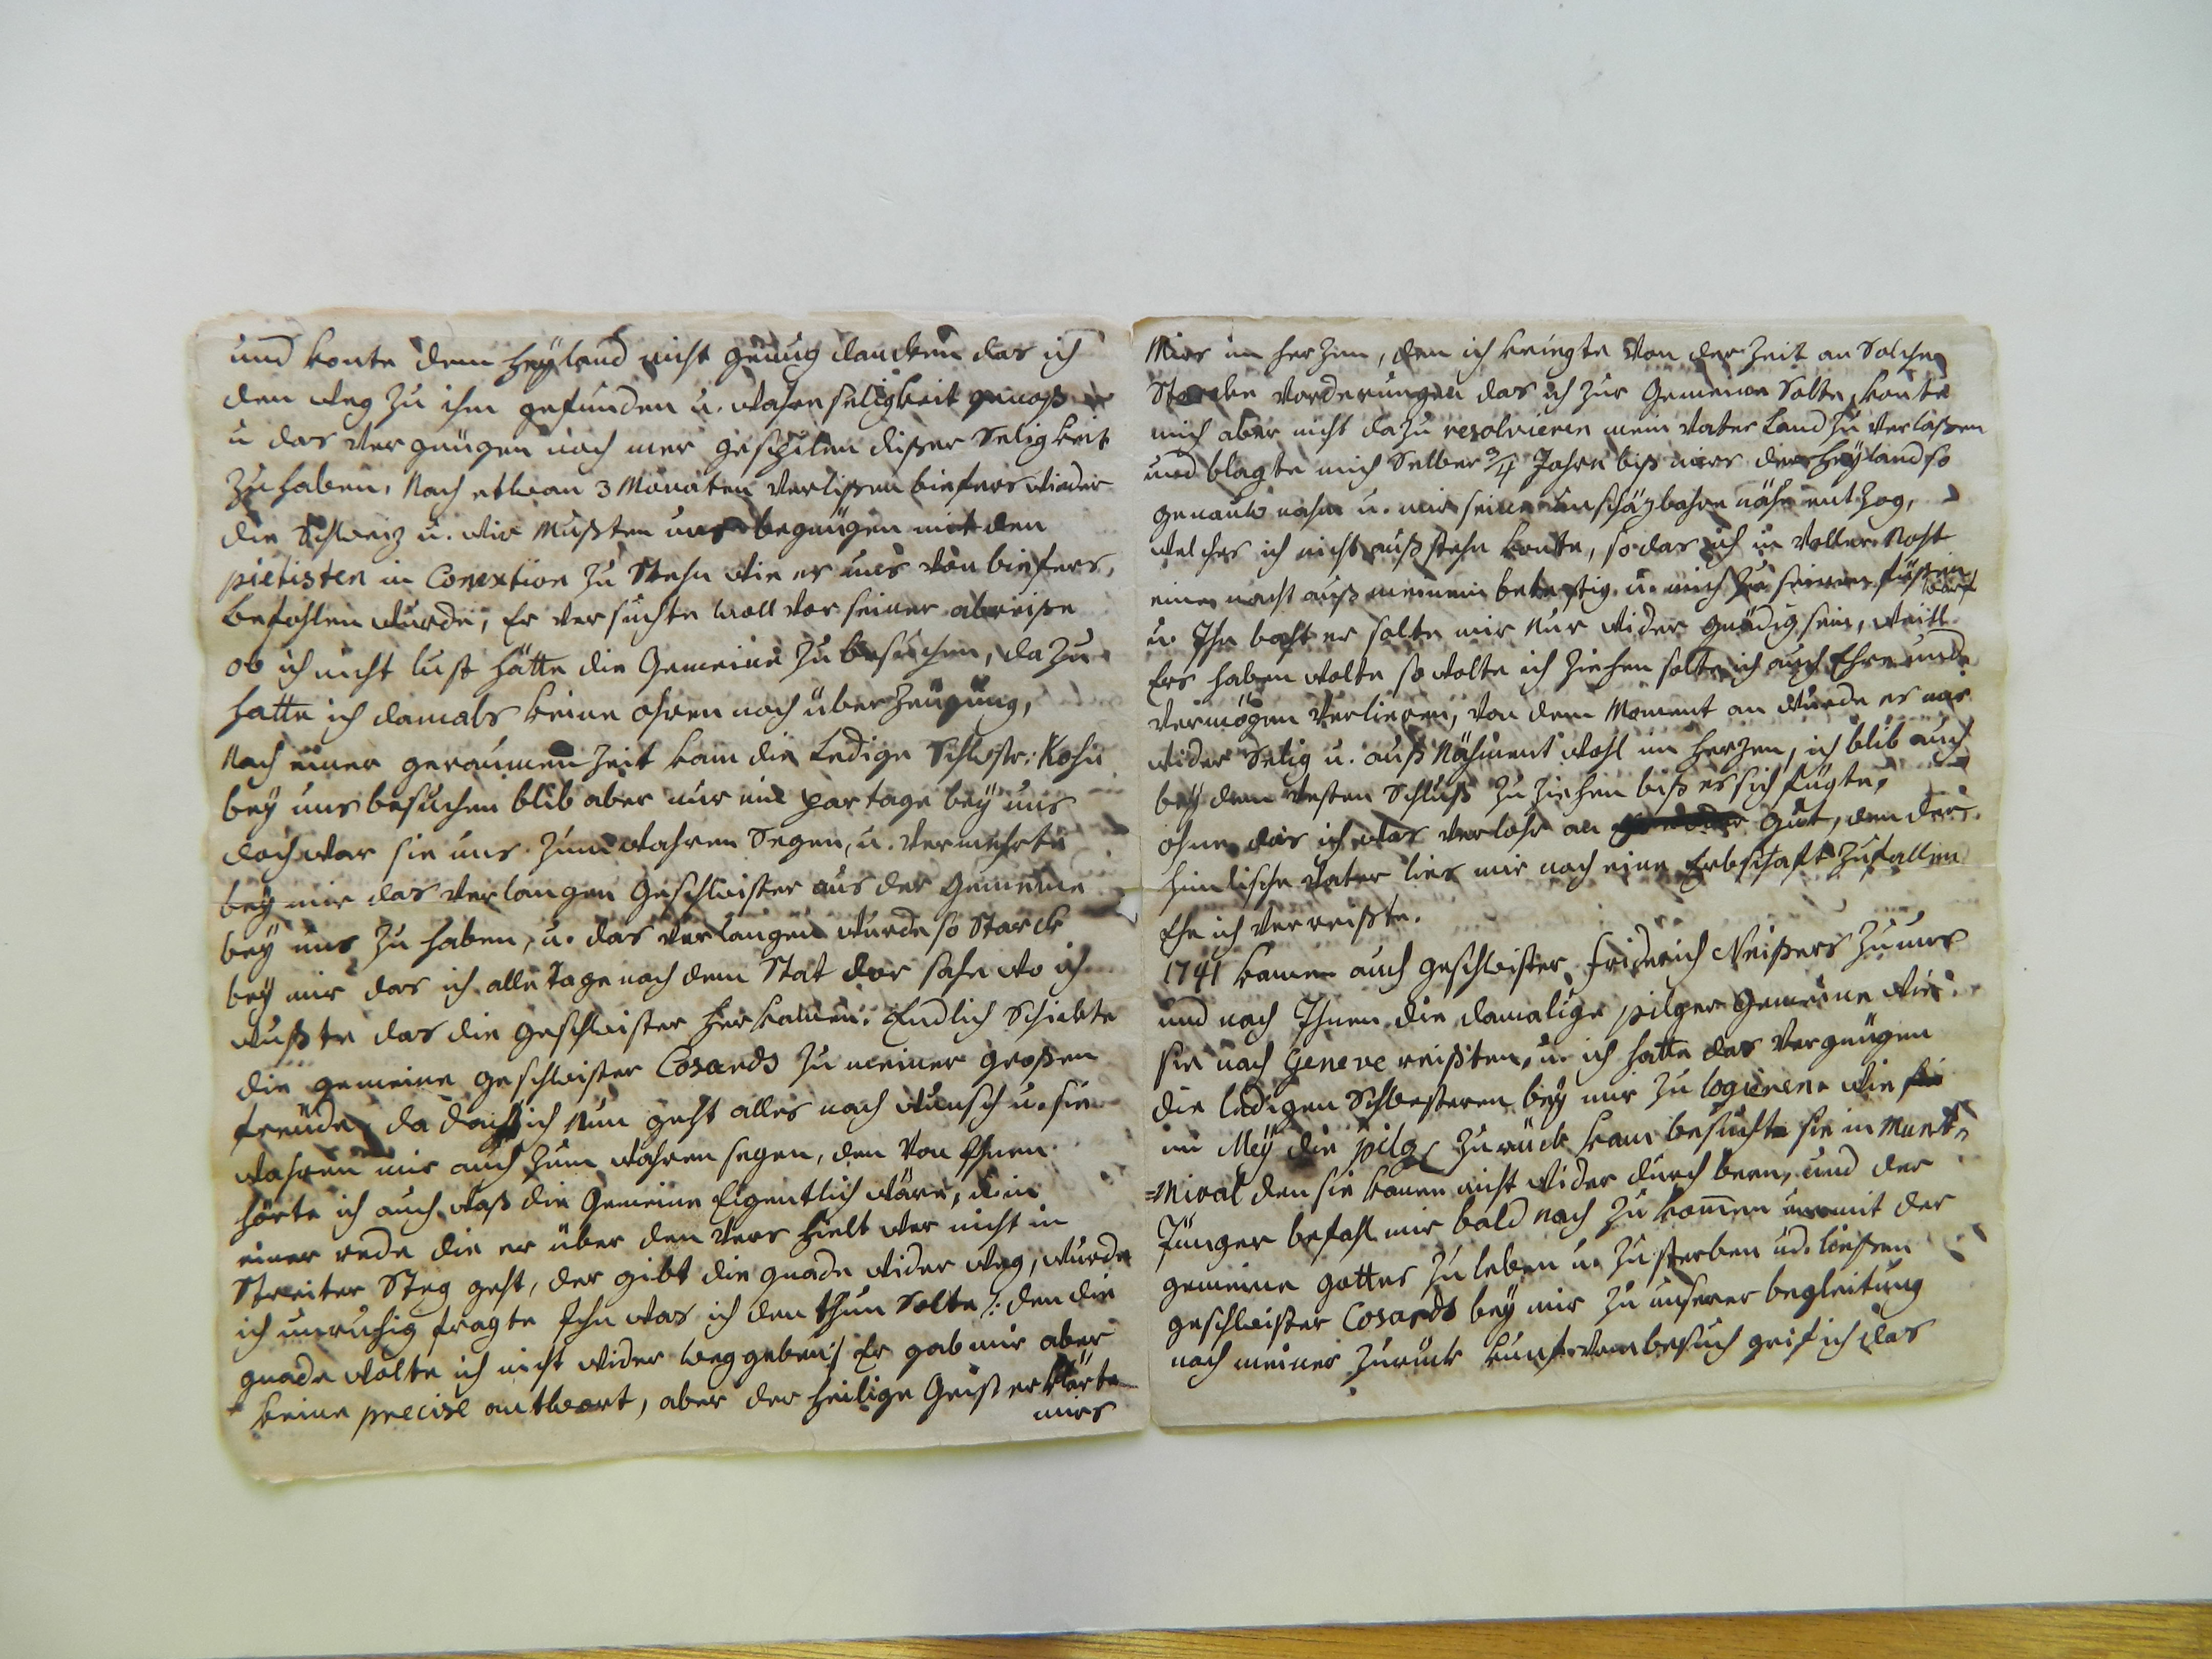 und konte dem Heyland nicht genug dancken das ich
den weg zu ihm gefunden u. wahre seligkeit genoß
u das vergnügen noch mer gespilen dißer Seligkeit
zu haben, Nach etwan 3 Monaten verlißen biefers wieder
die Schweiz u. wir mußten uns begnügen mit den
pietisten in Conextion zu stehn wie es uns von biefers,
befohlen wurde, Er versuchte woll vor seiner abreiße
ob ich nicht lust hätte die Gemeine zu besuchen, dazu
hatte ich damals keine ohren noch überzeugung,
Nach einer geraumen Zeit kam die Ledige Schwstr: Kohn
bey uns besuchen blib aber nur ein par tage bey uns
doch war sie uns zum wahren Segen, u. vermehrte
bey mir das verlangen Geschwister aus der Gemeine
bey uns zu haben, u. das verlangen wurde so starck
bey mir das ich alle Tage nach dem Stat dor sahe wo ich
wußte das die geschwister her kamen. Endlich schickte
die gemeine geschwister Cosards zu meiner großen
freude, da dacht ich Nun geht alles nach wunsch u. sie
wahren mir auch zum wahren segen, den von Ihnen
hörte ich auch waß die Gemeine Eigentlich wäre, u. in
einer rede die er über den vers hielt wer nicht in
Streiter Steg geht, der gibt die gnade wider weg, wurde
ich unruhig fragte Ihn was ich den thun solte /: den die
gnade wolte ich nicht wider weggeben :/ Er gab mir aber
keine precise antwort, aber der heilige Geist erklärte
mirs
Mirs im herzen, den ich kriegte von der Zeit an Solche
Starcke vorderungen das ich zur Gemeine Solte, konte
mich aber nicht dazu resolvieren mein vaterland zu verlaßen
und blagte mich Selber 3/4 Jahre biß mirs der Heyland so
genauw nahm u. mir seine unschäzbahre nähe entzog,
welches ich nicht außstehn konte, so das ich in voller Noht
eine nacht auß meinem bete stig u. mich zu seinen füßen warf
u. Ihn baht er solte mir nur wider gnädig sein, weill
Ers haben wolte so wolte ich ziehen solte ich auch Ehre und
vermögen verlieren, von dem Moment an wurde es mir
wider Selig u. auß Nähment wohl im herzen, ich blib auch
bey dem vesten Schluß zu ziehen biß es sich fügte,
ohne das ich was verlohr an gut, den der
himlische Vater lies mir noch eine Erbschaft zufallen
Ehe ich verreißte.
1741 kamen auch geschwister friderich Neißers zu uns
und nach Ihnen die damalige pilger Gemeine wie
sie nach Geneve reißten, u. ich hatte das vergnügen
die ledigen Schwesteren bey mir zu logieren wie
im Mey die pilg zurück kam besuchte sie in Munt-
=miral den sie kamen nicht wider durch bern, und der
Jünger befahl mir bald nach zu komen um mit der
gemeine gottes zu leben u. zu sterben ud. ließen
geschwister Cosards bey mir zu unserer begleitung
nach meiner zurück kunft vom besuch grif ich das